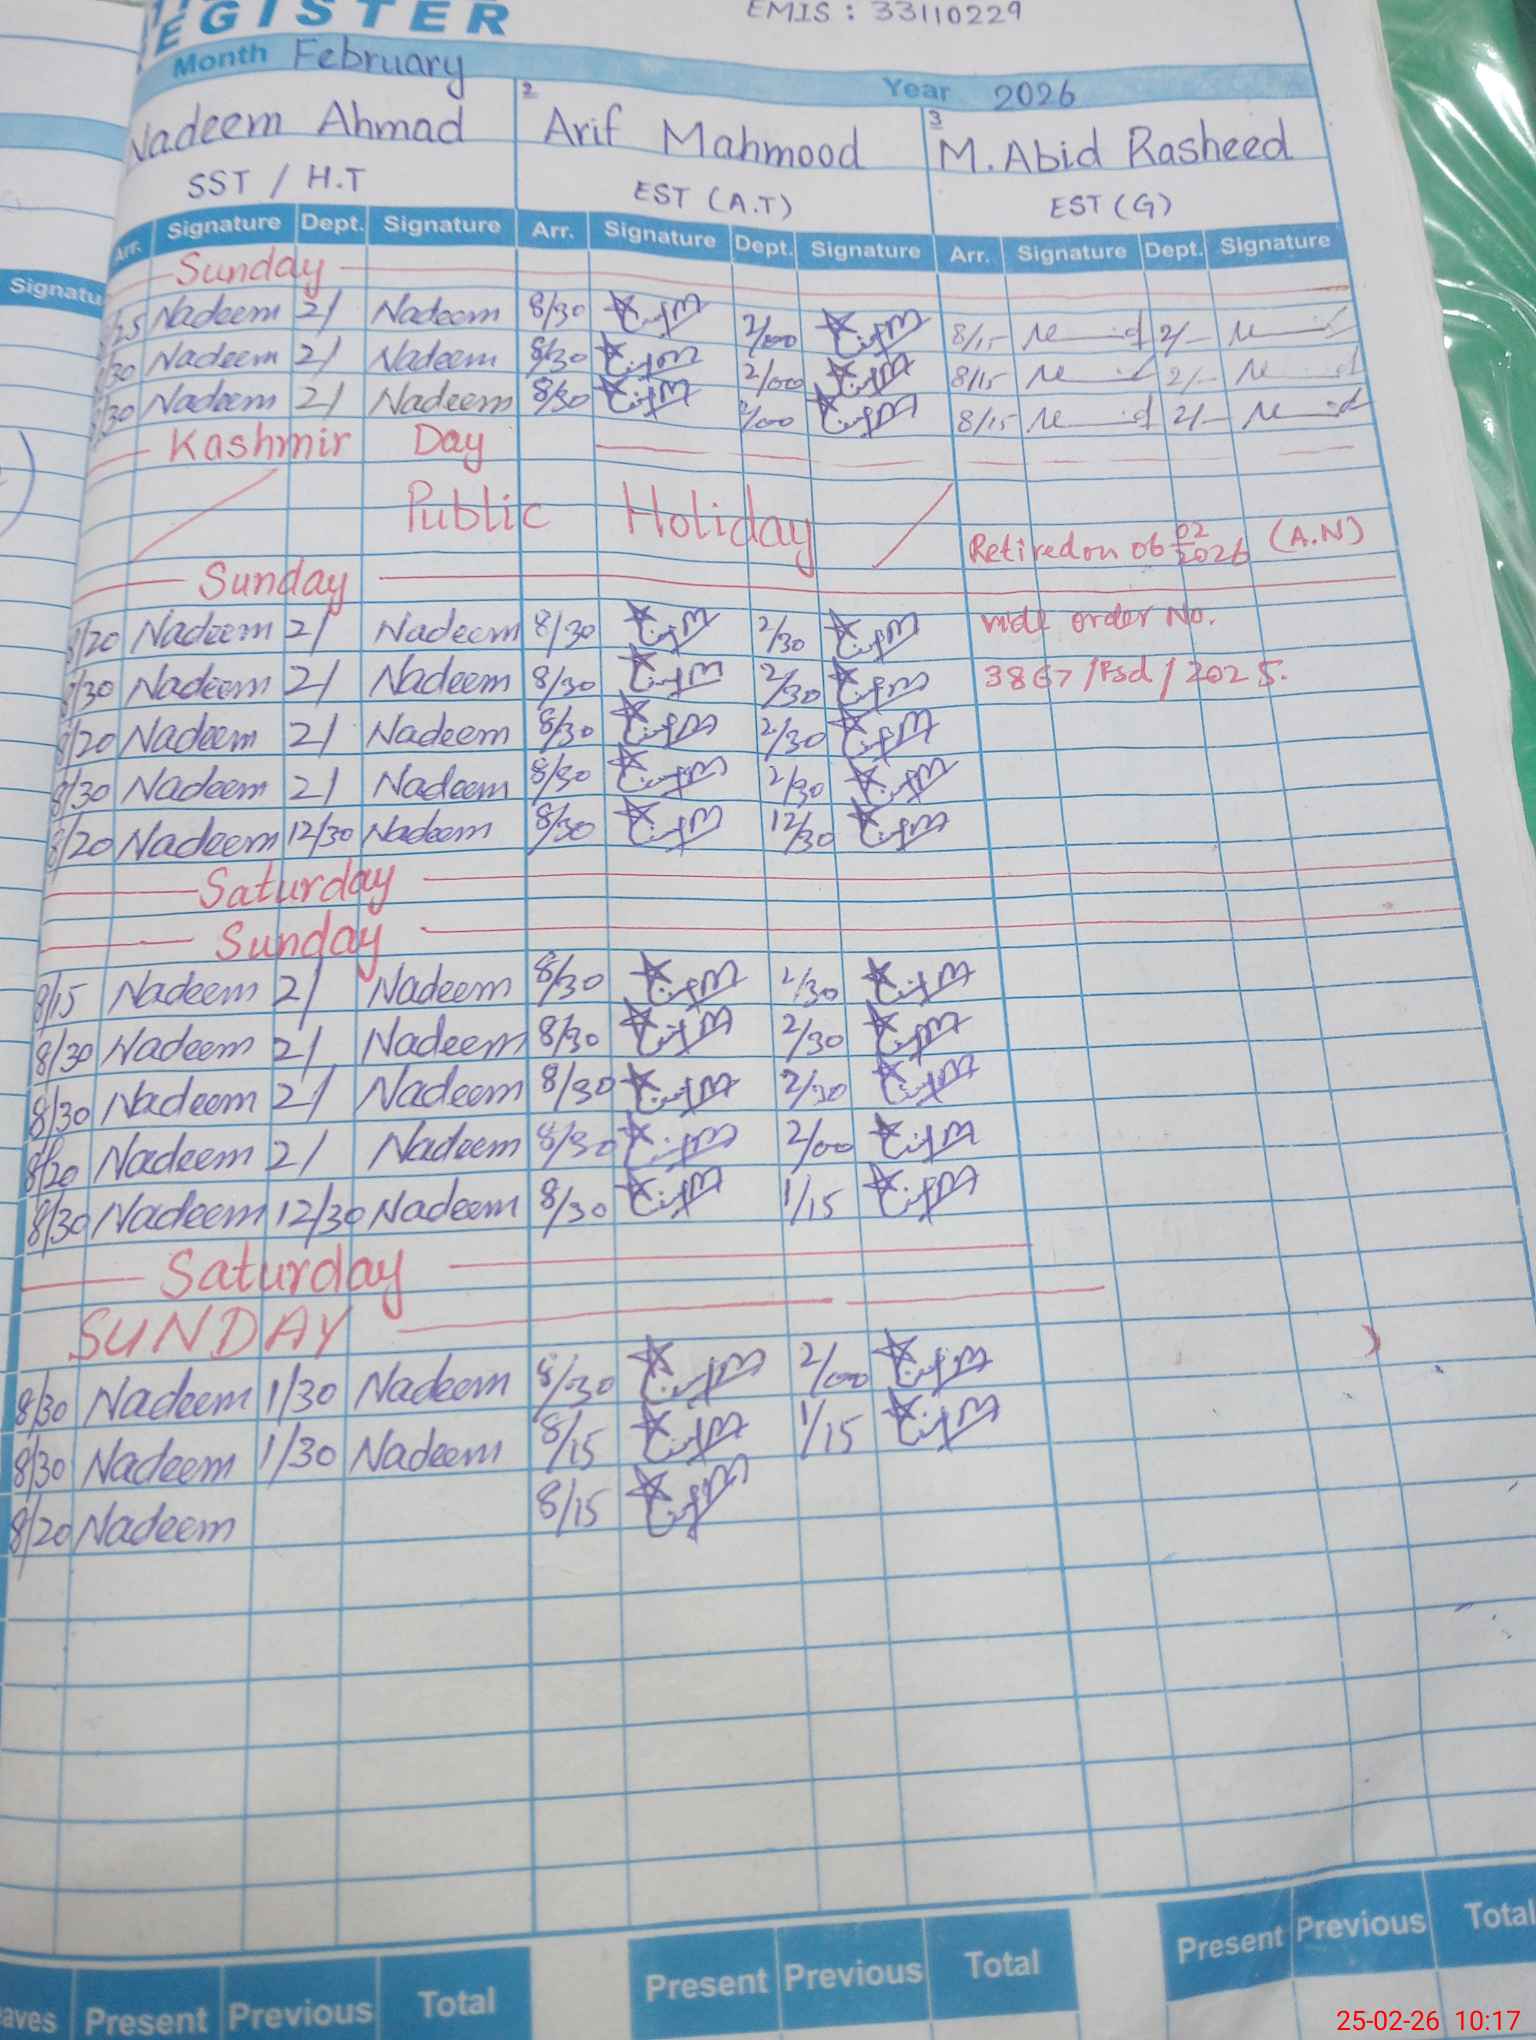 EGISTER
EMIS : 33110229
Month February Year 2026
Nadeem Ahmad 2 Arif Mahmood 3 M. Abid Rasheed
SST / H.T EST (A.T) EST (G)
Arr. Signature Dept. Signature Arr. Signature Dept. Signature Arr. Signature Dept. Signature
Signatu
Sunday
Nadeem 2/ Nadeem 8/30 2/00 8/15 2/-
8/30 Nadeem 2/ Nadeem 8/30 2/00 8/15 2/-
8/30 Nadeem 2/ Nadeem 8/30 2/00 8/15 2/-
Kashmir Day
Public Holiday
Retired on 06 02 2026 (A.N)
Sunday
vide order No.
8/20 Nadeem 2/ Nadeem 8/30 2/30
3867/Psd/2025.
8/30 Nadeem 2/ Nadeem 8/30 2/30
8/20 Nadeem 2/ Nadeem 8/30 2/30
8/30 Nadeem 2/ Nadeem 8/30 2/30
8/20 Nadeem 12/30 Nadeem 8/30 12/30
Saturday
Sunday
8/15 Nadeem 2/ Nadeem 8/30 2/30
8/30 Nadeem 2/ Nadeem 8/30 2/30
8/30 Nadeem 2/ Nadeem 8/30 2/30
8/20 Nadeem 2/ Nadeem 8/30 2/00
8/30 Nadeem 12/30 Nadeem 8/30 1/15
Saturday
SUNDAY
8/30 Nadeem 1/30 Nadeem 8/30 2/00
8/30 Nadeem 1/30 Nadeem 8/15 1/15
8/20 Nadeem 8/15
eaves Present Previous Total Present Previous Total Present Previous Total
25-02-26 10:17